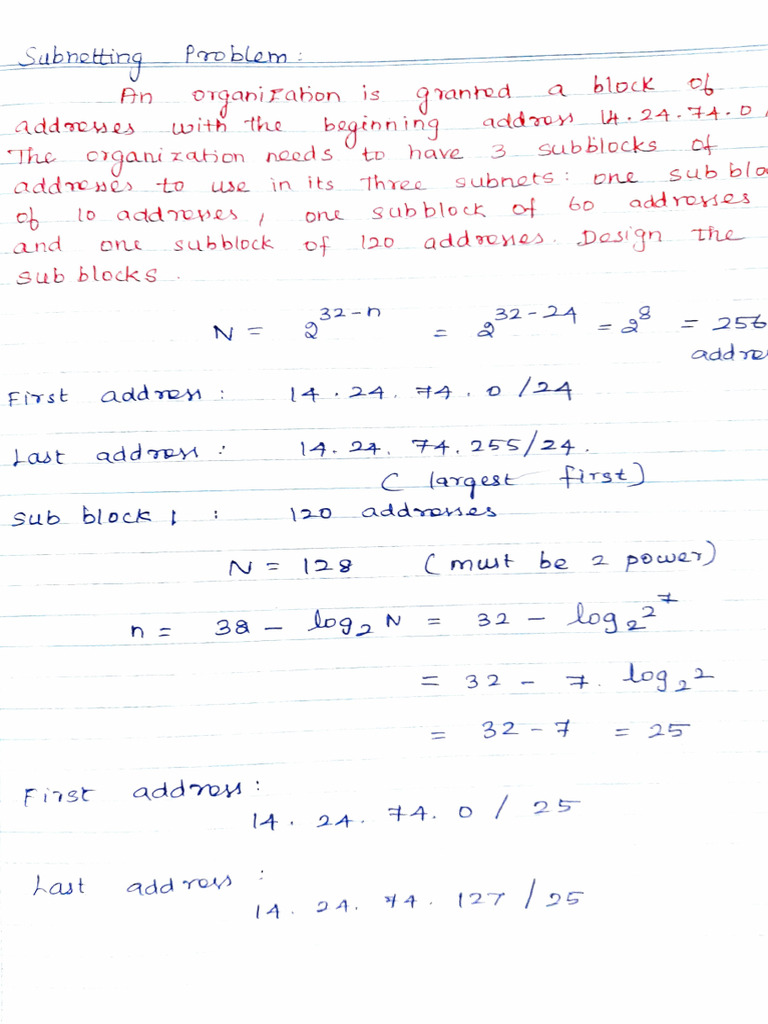 Subnetting Problem :
An organization is granted a block of
addresses with the beginning address 14.24.74.0
The organization needs to have 3 subblocks of
addresses to use in its three subnets : one sub bloc
of 10 addresses, one subblock of 60 addresses
and one subblock of 120 addresses. Design the
sub blocks.
N = 2^32-n = 2^32-24 = 2^8 = 256
addre
First address : 14.24.74.0/24
Last address : 14.24.74.255/24.
( largest first)
sub block 1 : 120 addresses
N = 128 (must be 2 power)
n = 38 - log₂ N = 32 - log₂ 2^7
= 32 - 7. log₂ 2
= 32 - 7 = 25
First address :
14.24.74.0 / 25
Last address :
14.24.74.127 / 25